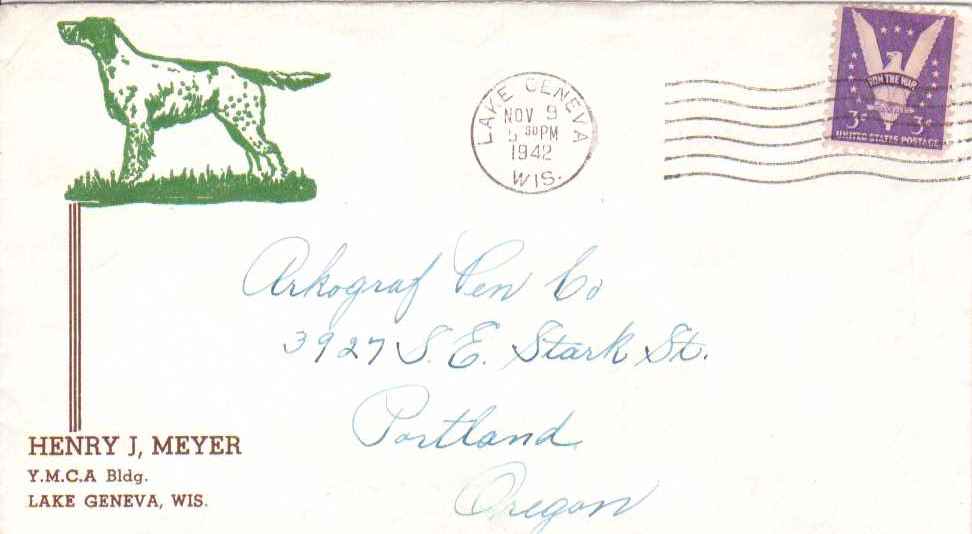 LAKE GENEVA
NOV 9
5 30 PM
1942
WIS.
WIN THE WAR
3¢ 3¢
UNITED STATES POSTAGE
Arkograf Pen Co
3927 S. E. Stark St.
Portland
Oregon
HENRY J, MEYER
Y.M.C.A Bldg.
LAKE GENEVA, WIS.